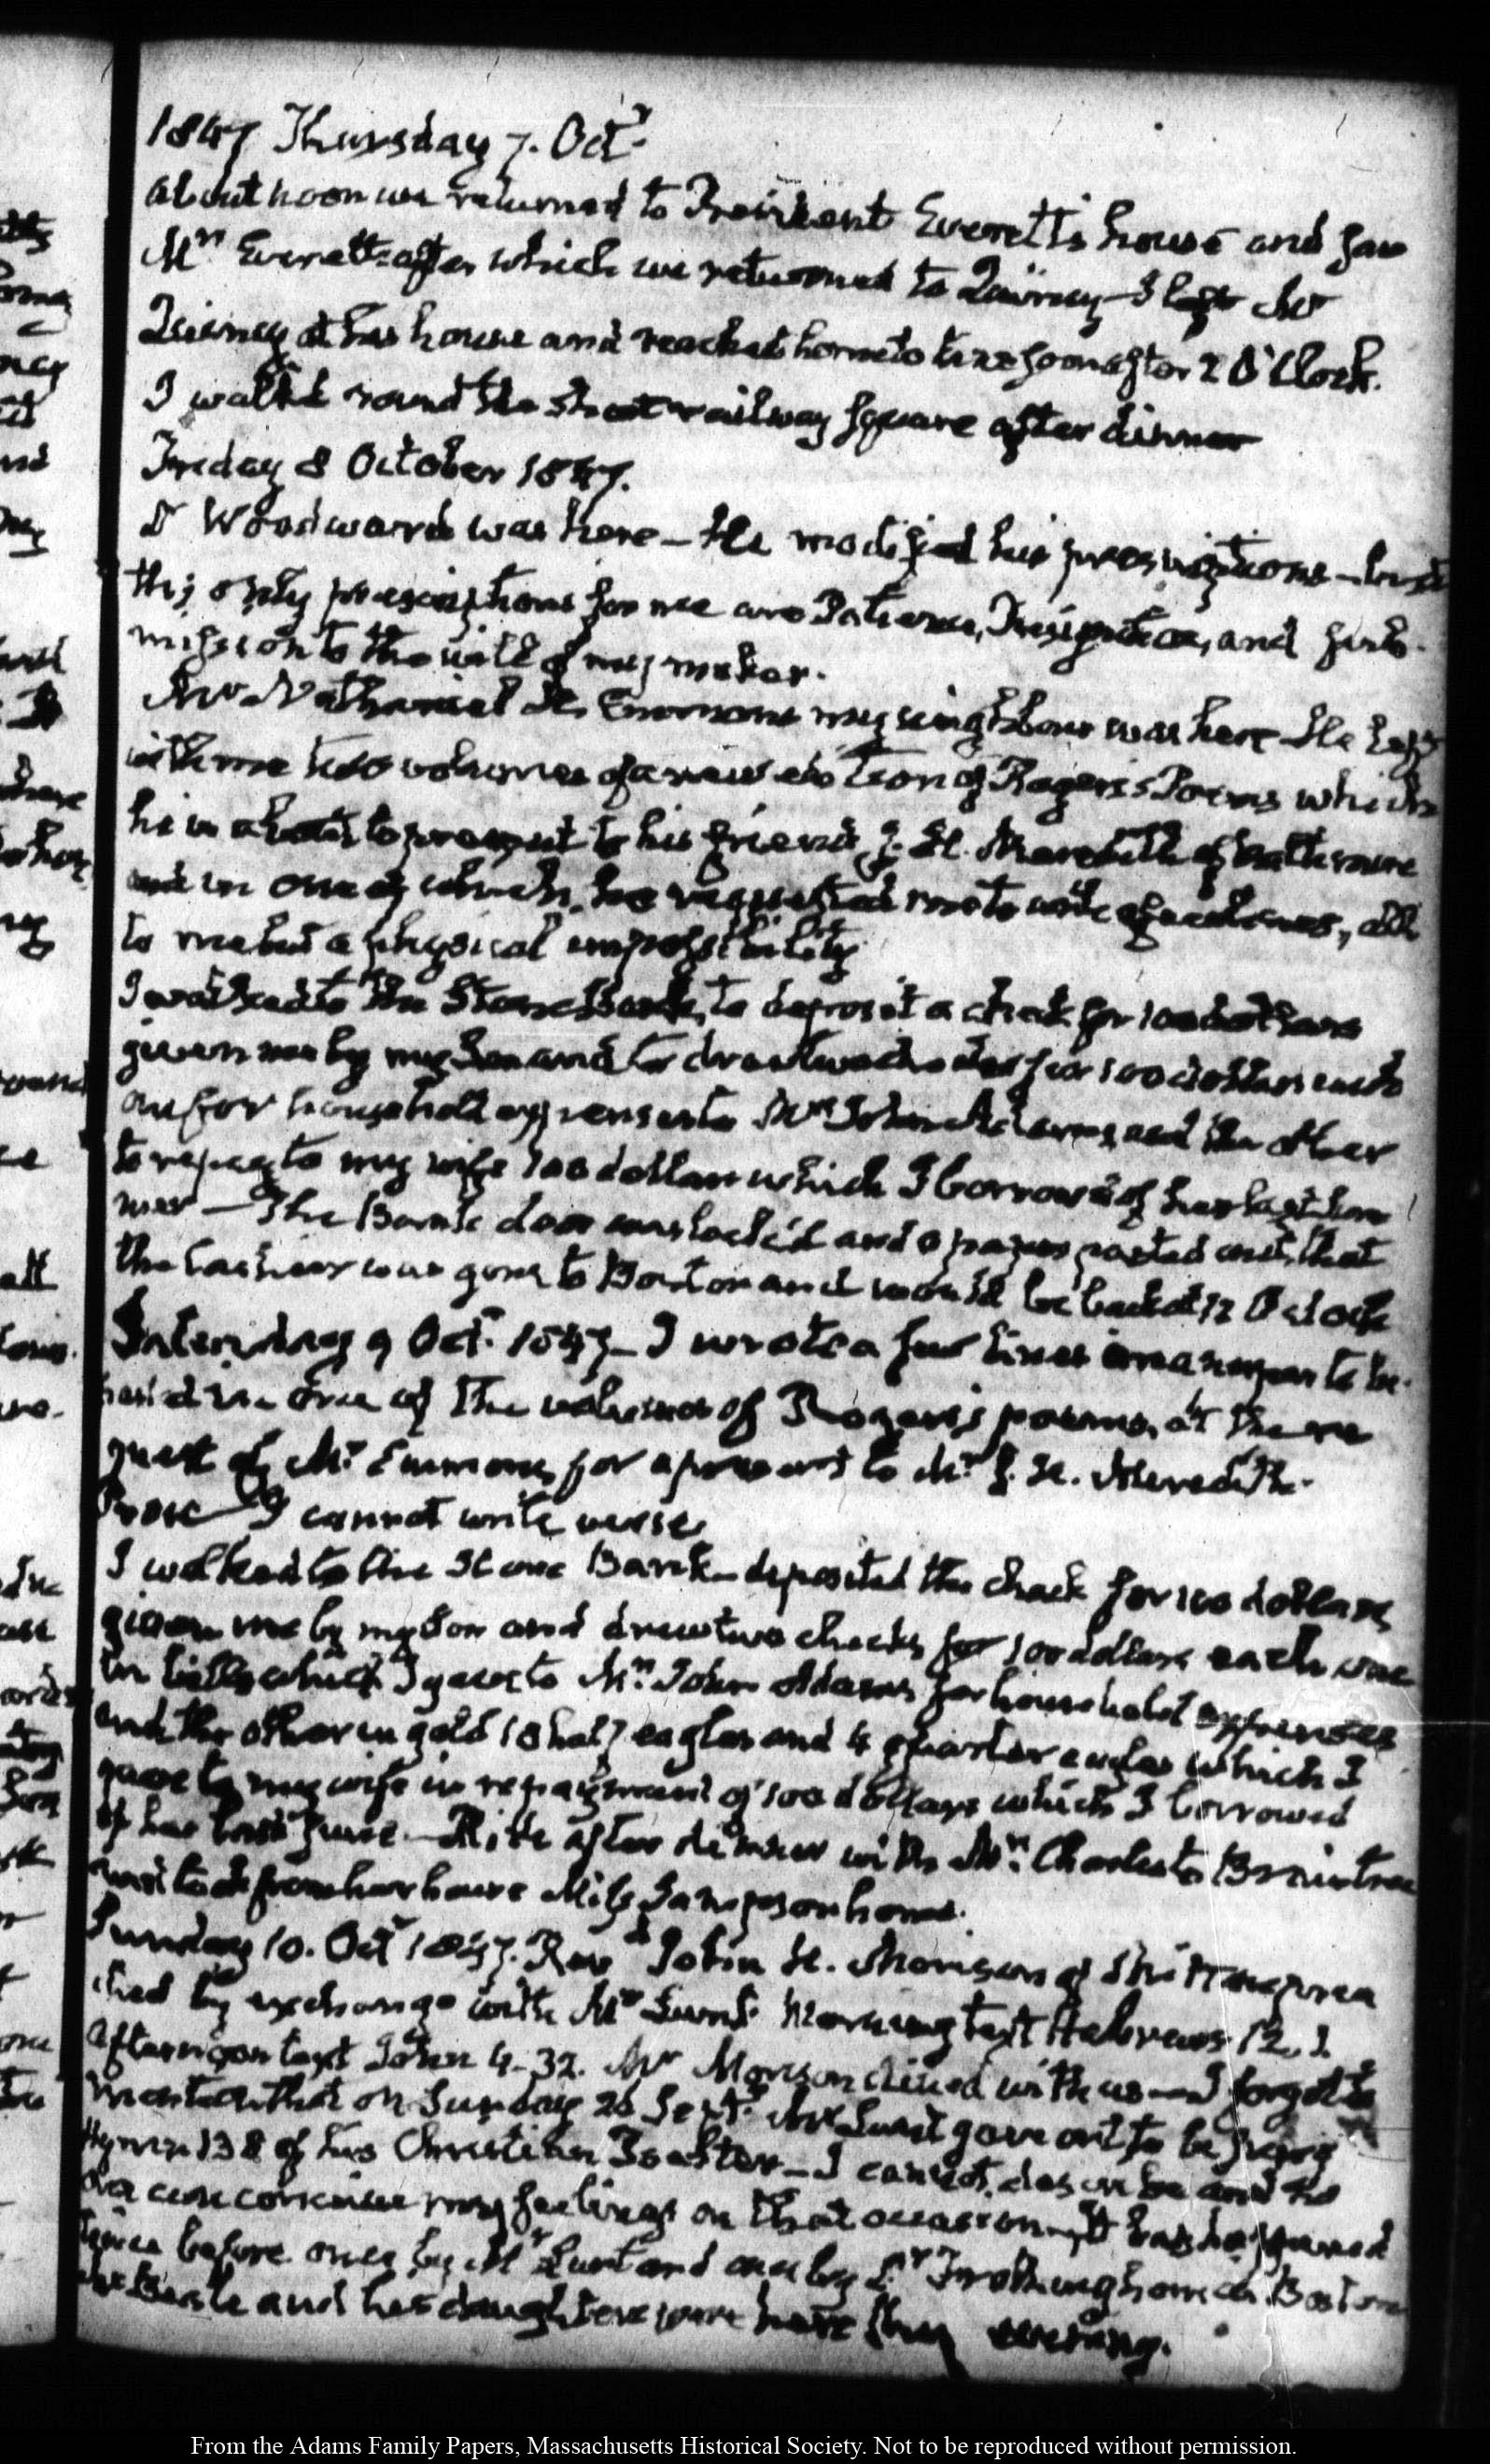 1847 Thursday 7. Octr
about noon we returned to President Everett's house and saw
Mrs Everett after which we returned to Quincy—I left Mr
Quincy at his house and reached home soon after 2 O'Clock.
I walk'd round the street railway square after dinner
Friday 8 October 1847.
Dr Woodward was here—He modified his prescriptions—but
the only prescriptions for me are Patience, Resignation, and sub-
mission to the will of my maker.
Mr Nathaniel H. Emmons my neighbour was here He left
with me two volumes of a new edition of Rogers's Poems which
he is about to present to his friend J. H. Meredith of Baltimore
and in one of which he requested me to write a few lines,
to me but a physical impossibility
I walked to the Stone Bank, to deposit a check for 100 dollars
given me by my Son and to draw two checks for 100 dollars each
one for household expenses to Mrs John Adams, and the other
to repay to my wife 100 dollars which I borrowed of her last sum
mer—The Bank door was lock'd and a paper posted out, that
the Cashier was gone to Boston and would be back at 12 O'clock
Saturday 9 Octr 1847—I wrote a few lines on a paper to be
in one of the volumes of Rogers's poems, at the re
quest of Mr Emmons, for a present to Mr J. H. Meredith.
Prose—I cannot write verse
I walked to the Stone Bank—deposited the check for 100 dollars
given me by my Son and drew two checks for 100 dollars each one
in bills which I gave to Mrs John Adams for household expenses
and the other in gold 18 half eagles and 4 quarter eagles which I
gave to my wife in repayment of 100 dollars which I borrowed
of her last June.—Ride after dinner with Mrs Charles to Braintree
and took from her house Miss Sampson home.
Sunday 10. Octr 1847. Revd John H. Morison of Milton prea
ched by exchange with Mr Lunt. Morning text Hebrews 12. 1
Afternoon text John 4-32. Mr Morison dined with us—I forgot to
mention that on Sunday 26 Septr Mr Lunt gave out to be sung
Hymn 138 of his Christian Psalter—I cannot describe and no
one can conceive my feelings on that occasion—It has happened
before once by Mr Lunt and once by Dr Frothingham in Boston
Mr Beale and his daughters were here this evening.
From the Adams Family Papers, Massachusetts Historical Society. Not to be reproduced without permission.